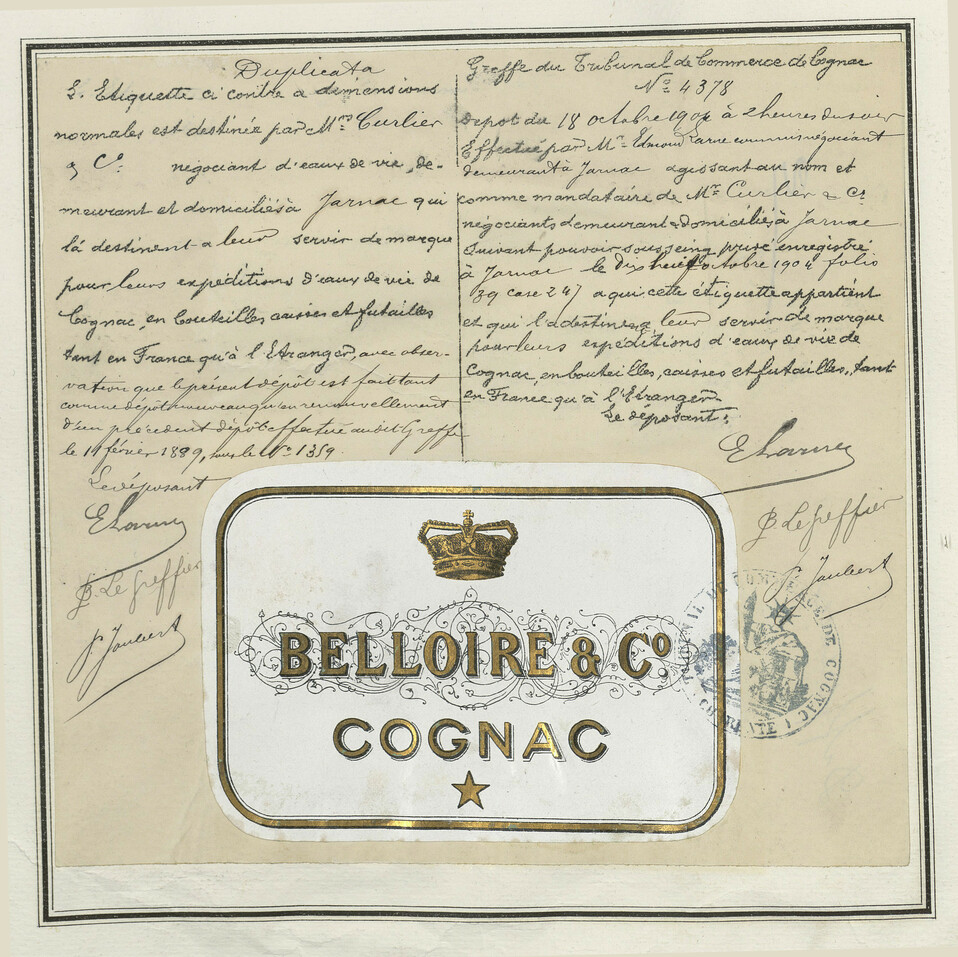 Duplicata
L. Etiquette ci contre a dimensions
normales est destinée par Mrs Curlier
& Co négociant d'eaux de vie, de-
meurant et domiciliés à Jarnac qui
là destinent a leur servir de marque
pour leurs expéditions d'eaux de vie de
Cognac, en bouteilles caisses et futailles
tant en France qu'à l'Etranger, avec obser-
vation que le présent dépôt est fait tant
comme dépôt nouveau qu'en renouvellement
d'un précédent dépôt effectué audit Greffe
le 11 février 1889, sous le No 1359.
Le déposant
B. Le Greffier
P. Joubert
Greffe du Tribunal de Commerce de Cognac
No 4378
Depot du 18 octobre 1904 à 2 heures du soir
Effectué par Mr Edmond commis négociant
demeurant à Jarnac agissant au nom et
comme mandataire de Mrs Curlier & Co
négociants demeurant & domiciliés à Jarnac
suivant pouvoir sous seing privé enregistré
à Jarnac le dix huit octobre 1904 folio
39 case 247 a qui cette étiquette appartient
et qui l'a destinent à leur servir de marque
pour leurs expéditions d'eaux de vie de
Cognac, en bouteilles, caisses et futailles, tant
en France qu'à l'Etranger
Le déposant:
B. Le Greffier
P. Joubert
BELLOIRE & Co
COGNAC
TRIBUNAL DE COMMERCE DE COGNAC
CHARENTE